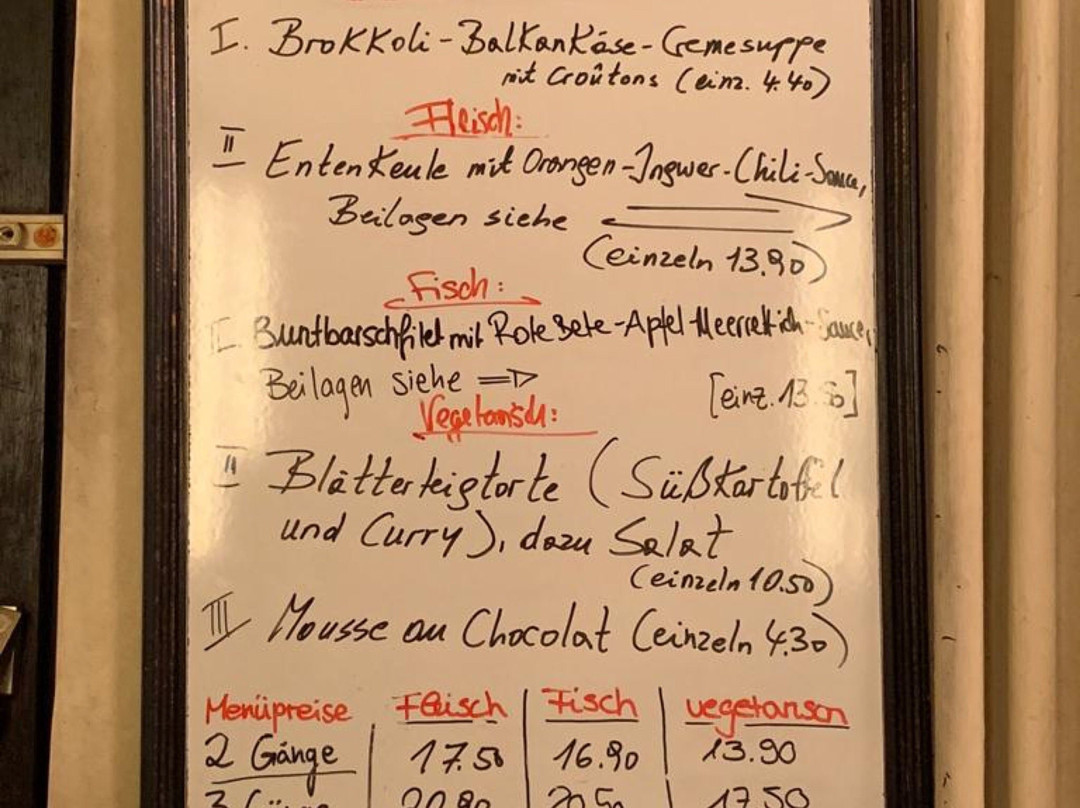 I. Brokkoli-Balkankäse-Cremesuppe
mit Croûtons (einz. 4.40)
Fleisch:
II Entenkeule mit Orangen-Ingwer-Chili-Sauce,
Beilagen siehe
(einzeln 13.90)
Fisch:
Buntbarschfilet mit Rote Bete-Apfel-Meerrettich-Sauce,
Beilagen siehe ⇒
[einz. 13.50]
Vegetarisch:
II Blätterteigtorte (Süßkartoffel
und Curry), dazu Salat
(einzeln 10.50)
III Mousse au Chocolat (einzeln 4.30)
Menüpreise Fleisch Fisch vegetarisch
2 Gänge 17.50 16.90 13.90
3 Gänge 20.80 20.50 17.50